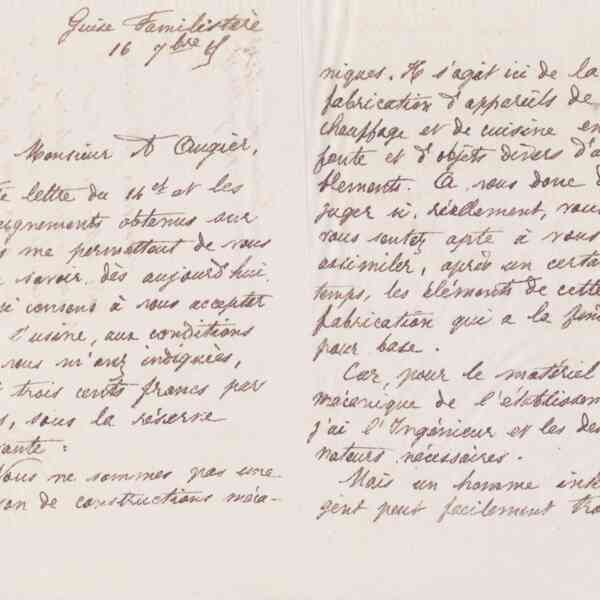 Guise Familistère
16 7bre
Monsieur A Augier,
lettre du 14 ct et les
seignements obtenus sur
me permettent de vous
savoir, dès aujourd'hui,
consens à vous accepter
l'usine, aux conditions
vous m'avez indiquées,
trois cents francs par
s, sous la réserve
vante :
Nous ne sommes pas une
son de constructions méca-
niques. Il s'agit ici de la
fabrication d'appareils de
chauffage et de cuisine en
fonte et d'objets divers d'a
blements. A vous donc d
juger si, réellement, vous
vous sentez apte à vous
assimiler, après un certa
temps, les éléments de cette
fabrication qui a la fon
pour base.
Car, pour le matériel
mécanique de l'établissem
j'ai l'Ingénieur et les des
nateurs nécessaires.
Mais un homme intel
gent peut facilement tro